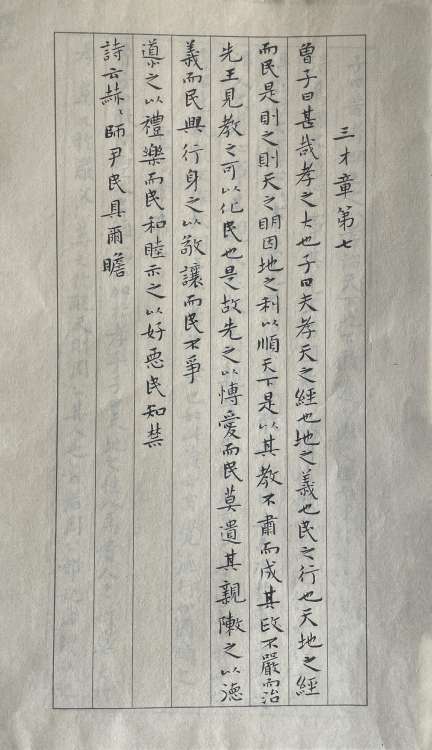 三才章第七
曾子曰甚哉孝之大也子曰夫孝天之經也地之義也民之行也天地之經
而民是則之則天之明因地之利以順天下是以其教不肅而成其政不嚴而治
先王見教之可以化民也是故先之以博愛而民莫遺其親陳之以德
義而民興行身之以敬讓而民不爭
導之以禮樂而民和睦示之以好惡民知禁
詩云赫〻師尹民具爾瞻